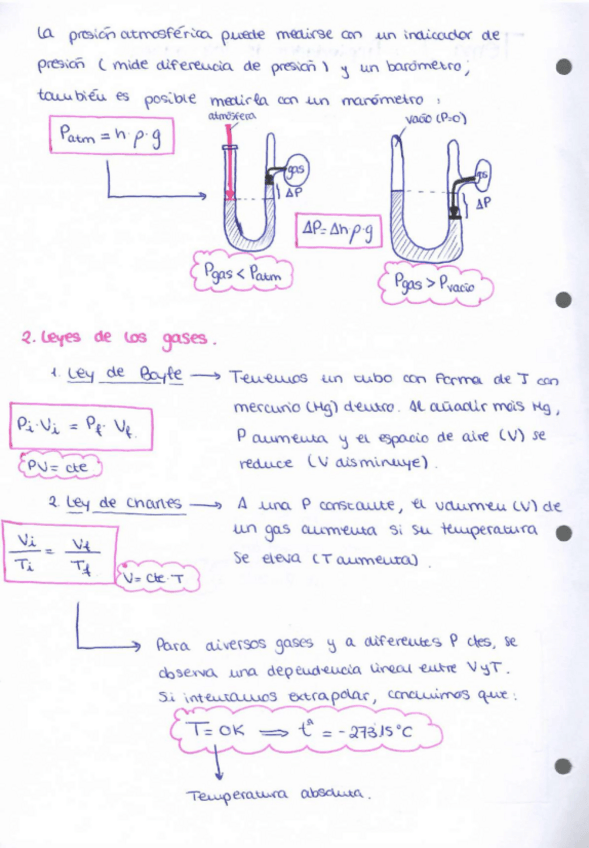 La presión atmosférica puede medirse con un indicador de
presión (mide diferencia de presión) y un barómetro;
también es posible medirla con un manómetro:
Patm = h·ρ·g
atmósfera
gas
ΔP
vacío (P=0)
gas
ΔP
ΔP=Δh ρ·g
Pgas < Patm
Pgas > Pvacío
2. Leyes de los gases.
1. Ley de Boyle → Tenemos un tubo con forma de J con
mercurio (Hg) dentro. Al añadir más Hg,
P aumenta y el espacio de aire (V) se
reduce (V disminuye).
Pi·Vi = Pf·Vf.
PV = cte
2. Ley de Charles → A una P constante, el volumen (V) de
un gas aumenta si su temperatura
se eleva (T aumenta).
Vi/Ti = Vf/Tf
V= cte·T
Para diversos gases y a diferentes P ctes, se
observa una dependencia lineal entre V y T.
Si intentamos extrapolar, concluimos que:
T= 0K ⟹ tª = -273'15°C
Temperatura absoluta.